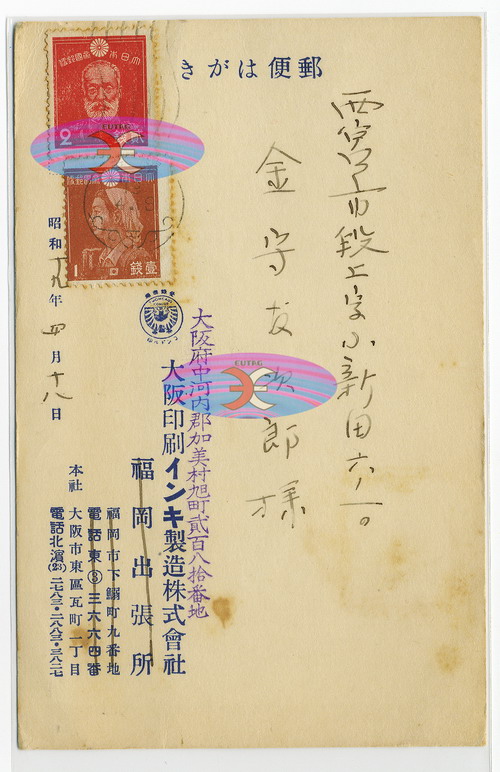 郵便はがき
西宮市段上字小新田六ノ一。
金守友次郎様
大阪府中河内郡加美村旭町貳百八拾番地
大阪印刷インキ製造株式會社
福岡出張所
福岡市下鰯町九番地
電話東(3)三六六四番
本社 大阪市東區瓦町一丁目
電話北濱(23)二七八三・二八八三・三八二七
昭和十九年四月十八日
大日本帝國郵便
2
貳
EUTAG
大日本帝國郵便
1
壹錢
EUTAG